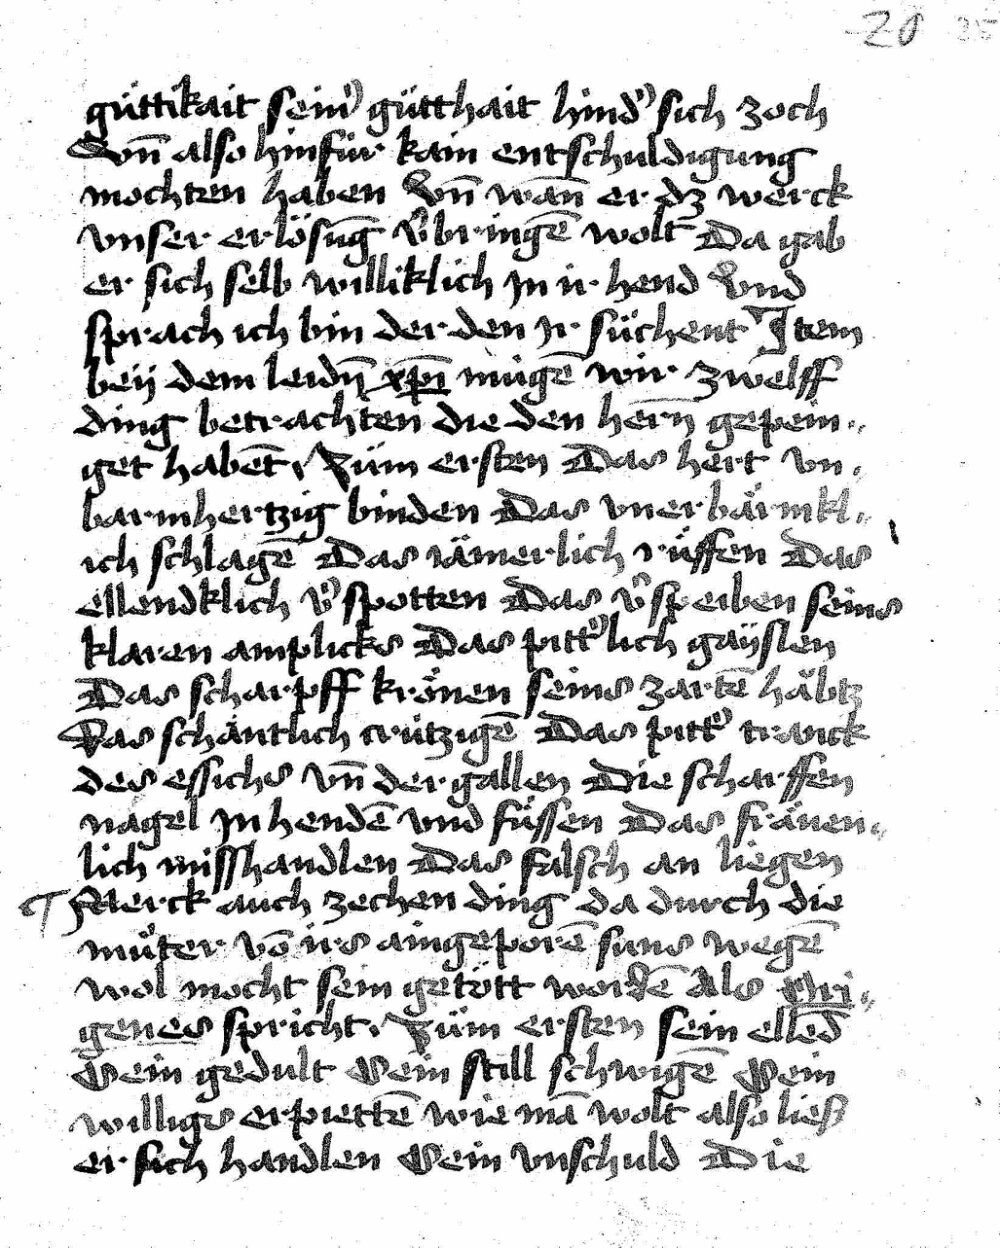 20 25
güttikait sein' gütthait hind' sich zoch
Vn̄ also hinfür kain entschuldigung
mochten haben Vn̄ wan̄ er dz werck
vnser erlösūg v'bringē wolt Da gab
er sich selb williklich jn ir hend Vnd
sprach ich bin der den jr süchent Item
beÿ dem leidn̄ xp̄i mügē wir zwelff
ding betrachten die den hern̄ gepein„
get habēt, Züm ersten Das hert vn„
barmhertzig binden Das vnerbärmkl„
ich schlagē Das iämerlich rüffen Das
ellendklich v'spotten Das v'speiben seins
klaren amplicks Das pitt'lich gaÿslen
Das scharpff krönen seins zartē häbtz
Das schäntlich crützigē Das pitt' tranck
des essichs vn̄ der gallen Die scharffen
nagel jn hendē vnd füssen Das fräuen„
lich misshandlen Das falsch an liegen
¶ Merck auch zechen ding da durch die
müter vō irs aingeporē suns wegē
wol mocht sein getött wordē Als Ori„
genes spricht, Züm ersten sein ellēd
Sein gedult Sein still schwigē Sein
willigs erpiettē wie mā wolt also ließ
er sich handlen Sein vnschuld Die